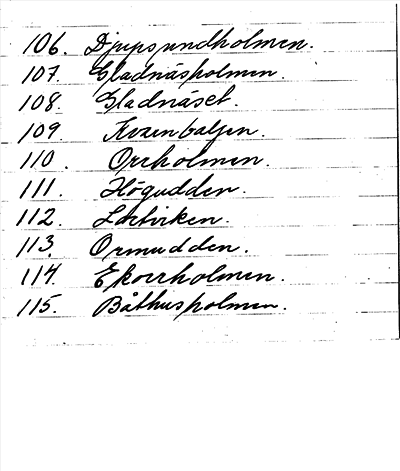 106. Djupsundholmen.
107. Gladnäsholmen.
108. Gladnäset.
109. Kvarnbaljen.
110. Orrholmen.
111. Högudden.
112.
113. Ormudden.
114. Ekorrholmen.
115. Båthusholmen.